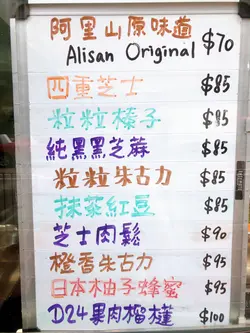 阿里山原味道
Alisan Original $70
四重芝士 $85
粒粒榛子 $85
純黑黑芝蔴 $85
粒粒朱古力 $85
抹茶紅豆 $85
芝士肉鬆 $90
橙香朱古力 $95
日本柚子蜂蜜 $95
D24果肉榴槤 $100